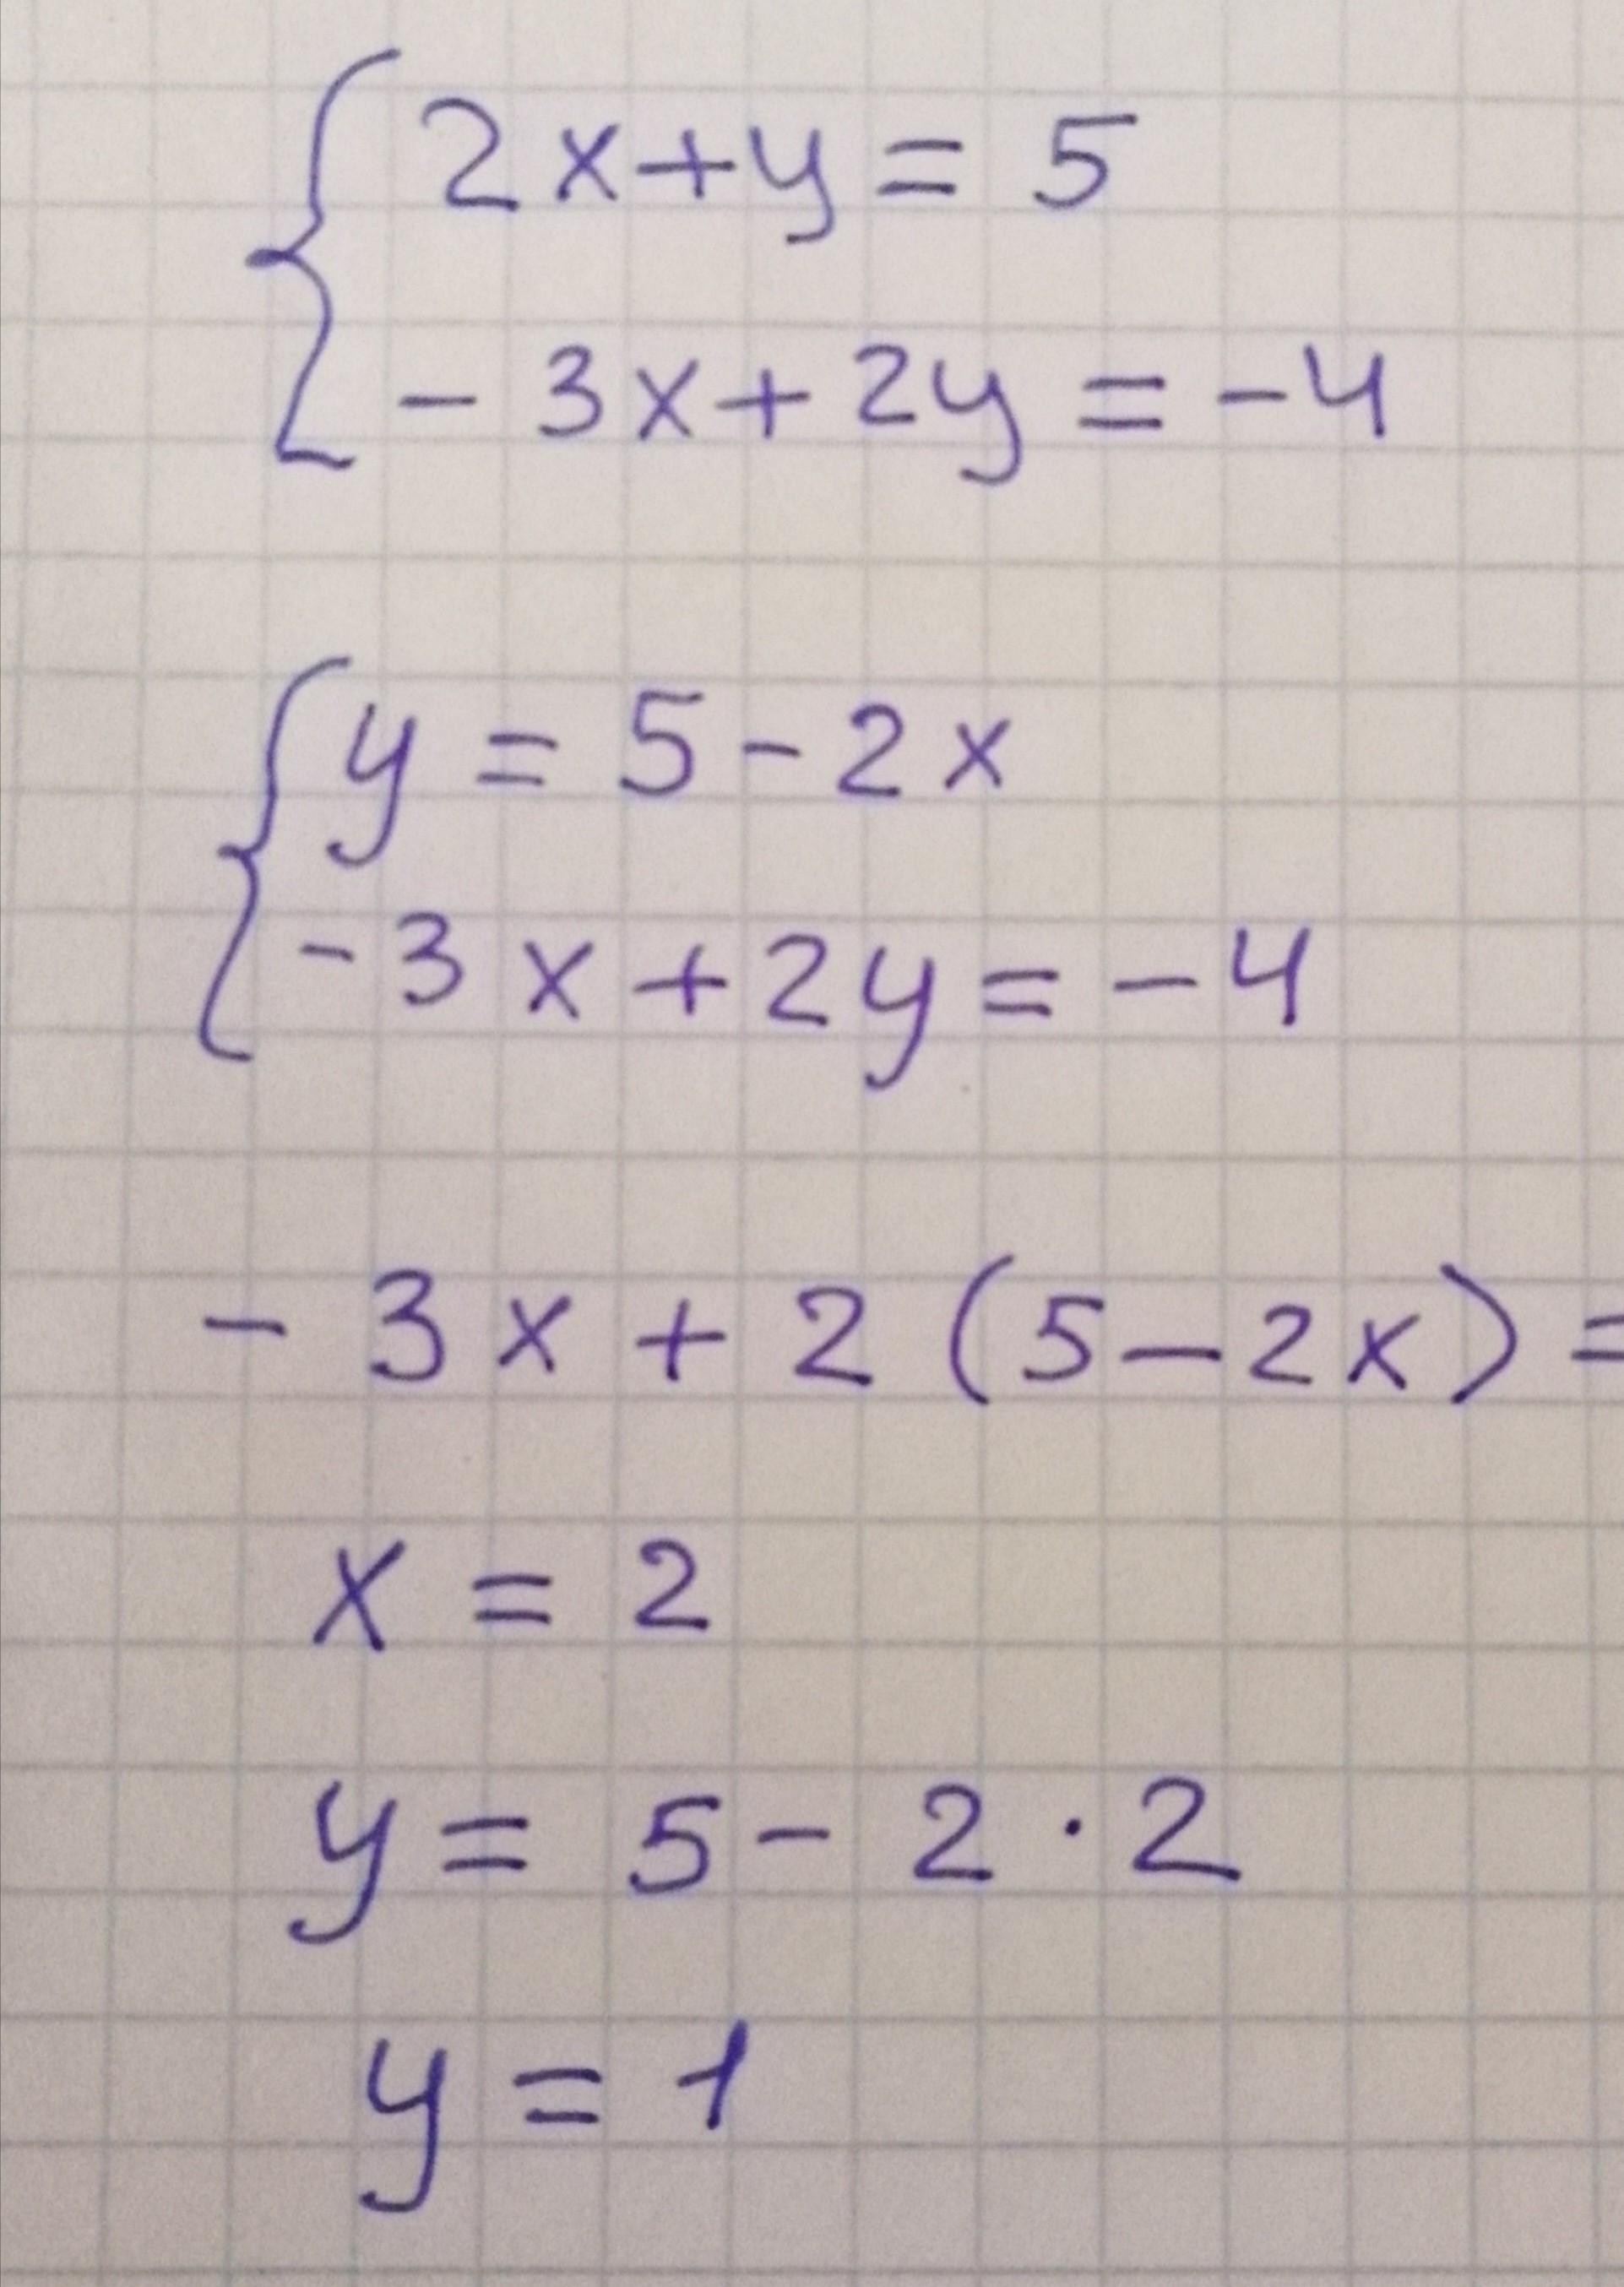 2x+y=5
-3x+2y=-4
y=5-2x
-3x+2y=-4
-3x+2(5-2x)=
x=2
y=5-2·2
y=1